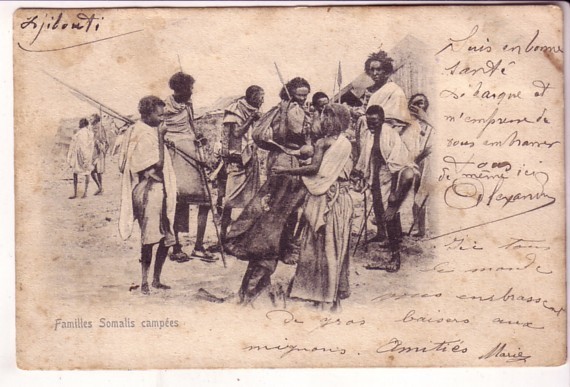 Djibouti
Suis en bonne
santé
débarqué et
m'empresse de
vous embrasser
tous
de même ici
Alexandre
Ici tous
le monde
vous embrassent
De gros baisers aux
mignons. Amitiés Marie
Familles Somalis campées